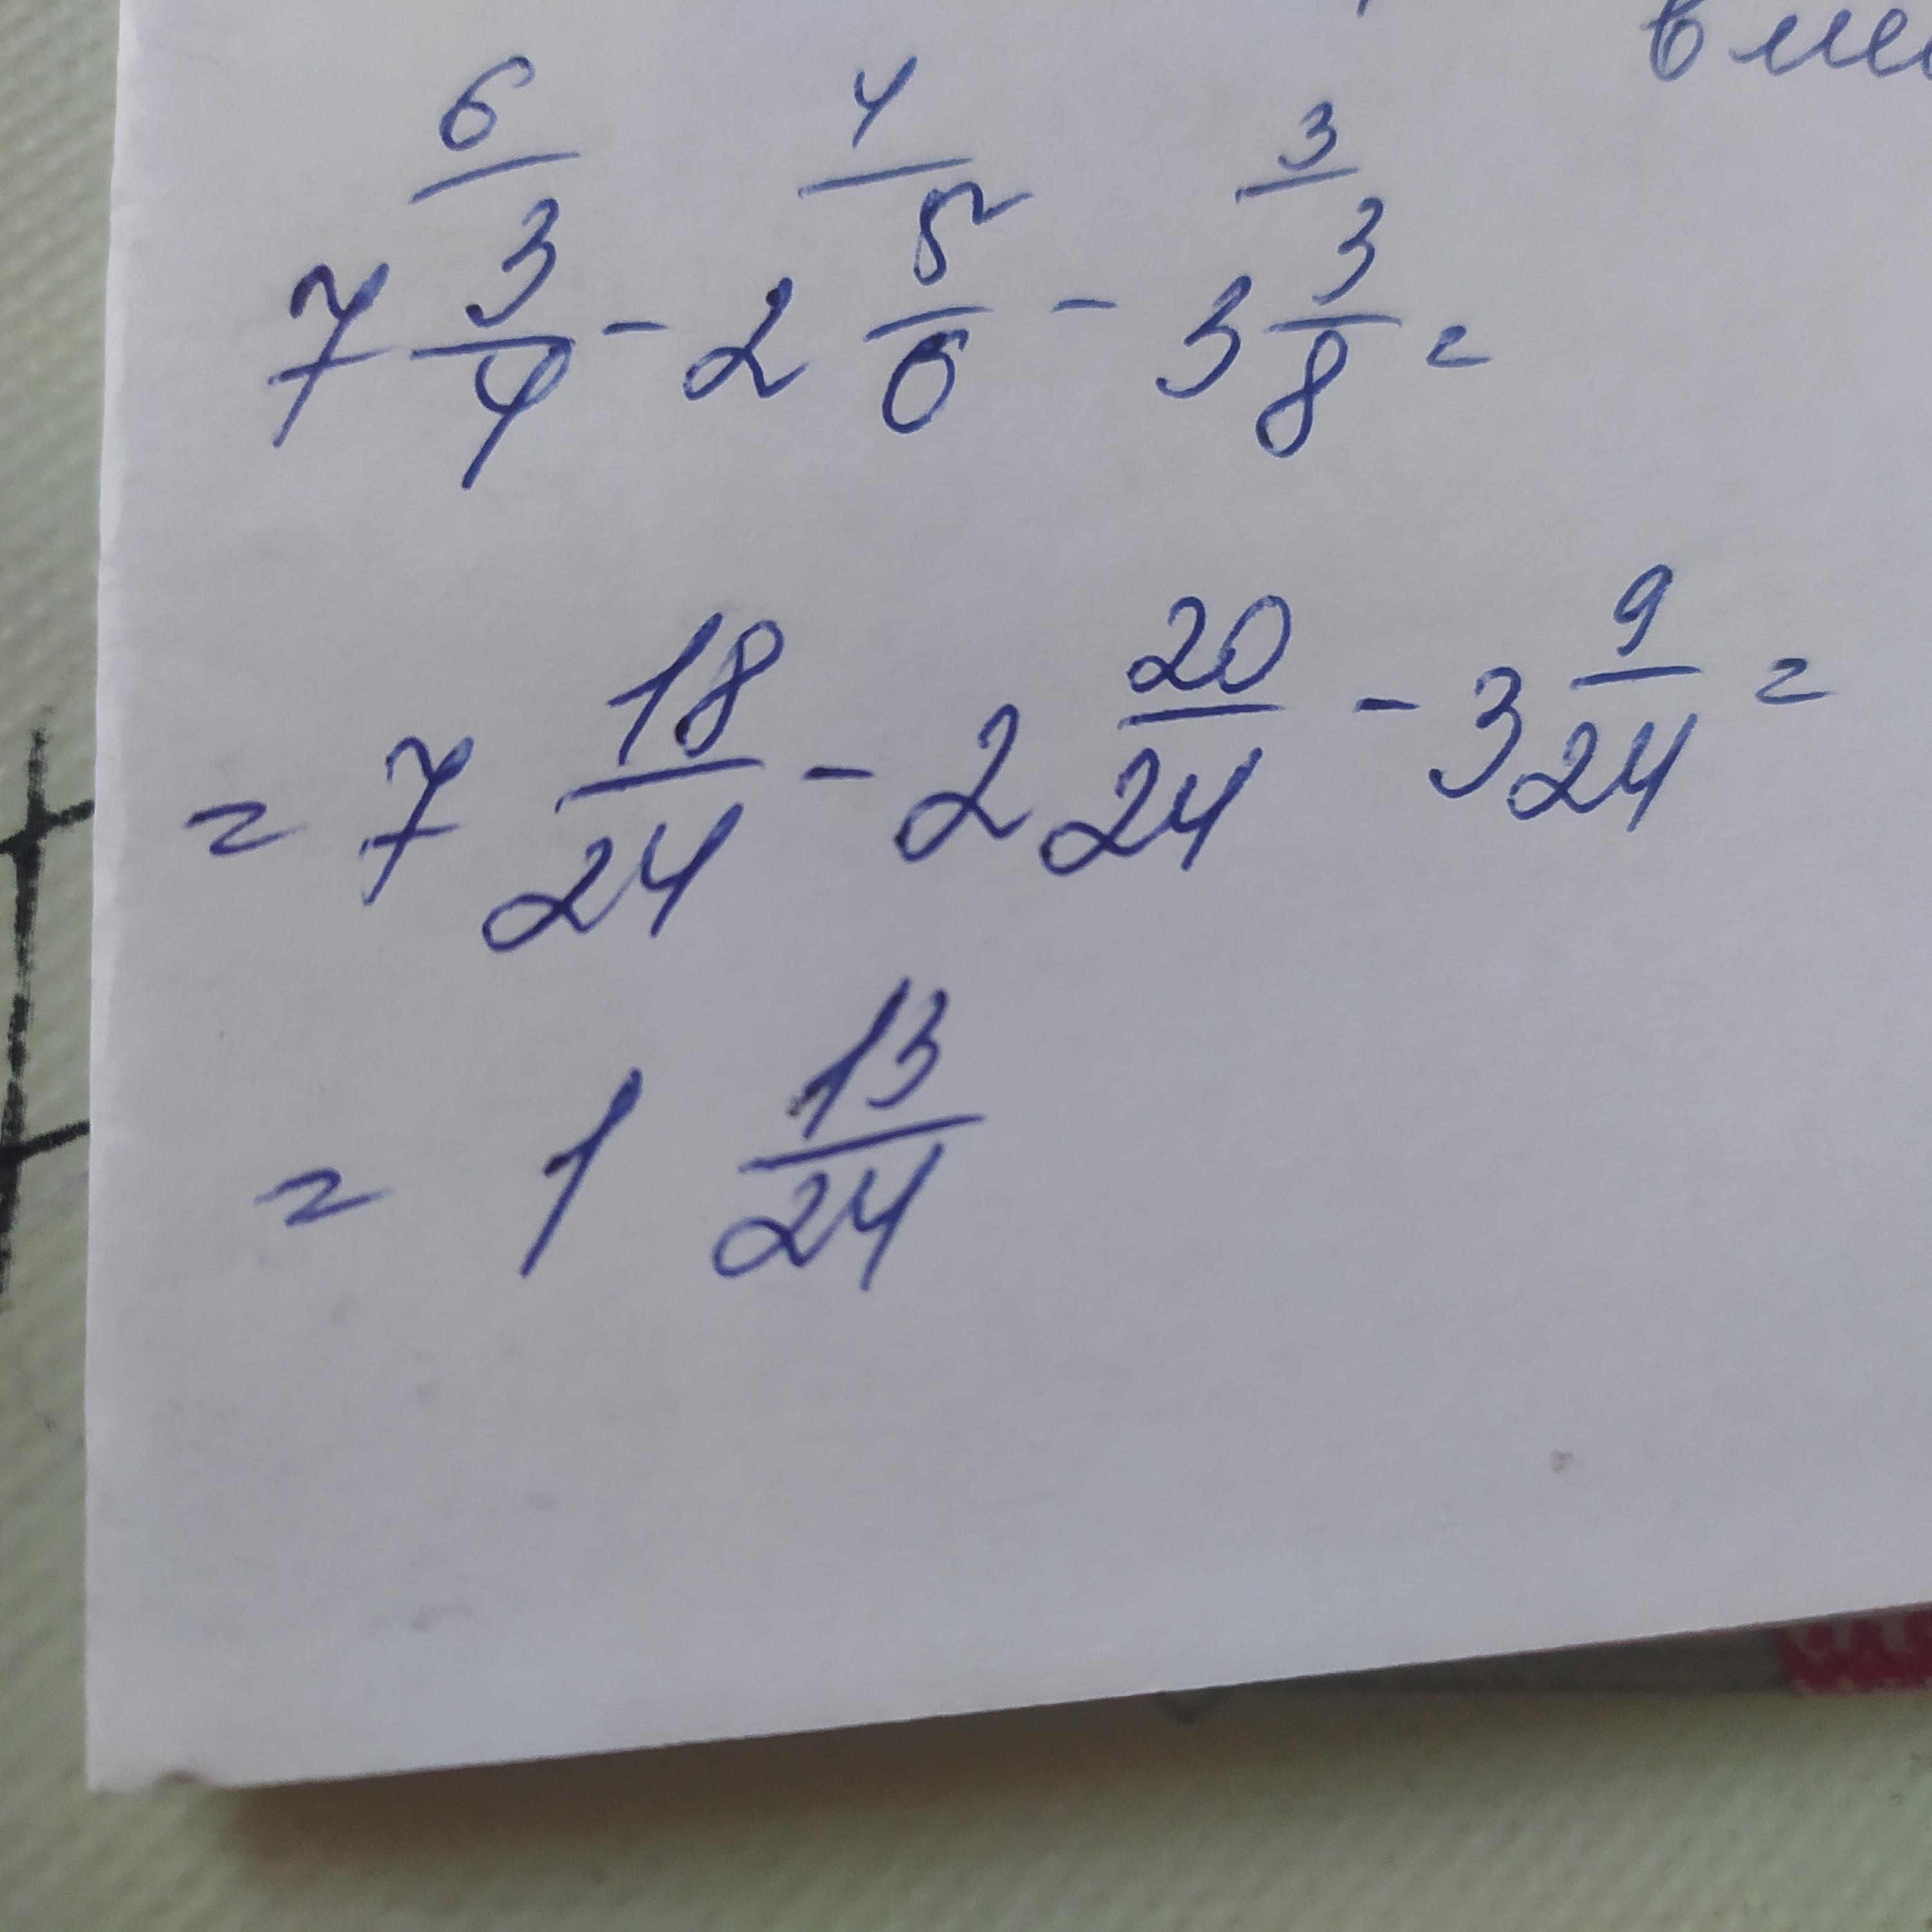 6 4 3
7 3/4 - 2 5/6 - 3 3/8 =
= 7 18/24 - 2 20/24 - 3 9/24 =
= 1 13/24